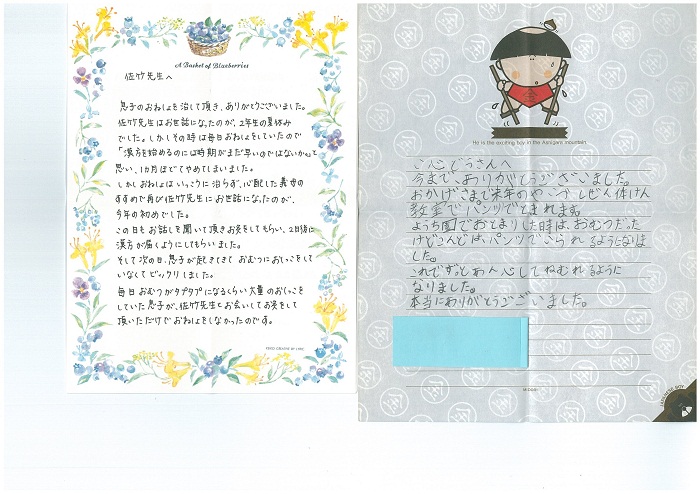 A Basket of Blueberries
佐竹先生へ
息子のおねしょを治して頂き、ありがとうございました。
佐竹先生はお世話になったのが、2年生の夏休み
でした。しかしその時は毎日おねしょをしていたので
「漢方を始めるのには時期がまだ早いのではないか。」と
思い、1カ月ほどでやめてしまいました。
しかしおねしょはいっこうに治らず、心配した義母の
すすめで再び佐竹先生にお世話になったのが、
今年の初めでした。
この日もお話しを聞いて頂きお灸をしてもらい、2日後に
漢方が届くようにしてもらいました。
そして次の日、息子が起きてきて おむつにおしっこをして
いなくて ビックリしました。
毎日おむつがタプタプになるくらい大量のおしっこを
していた息子が、佐竹先生とお会いしてお灸をして
頂いただけでおねしょをしなかったのです。
He is the exciting boy in the Asigara mountain.
さんへ
今まで、ありがとうございました。
おかげさまで来年のやこう しぜん体けん
教室でパンツでとまれます。
ようち園でおとまりした時は、おむつだった
けどこんどは、パンツでこられるようになりま
した。
これでずっとあん心してねむれるように
なりました。
本当にありがとうございました。